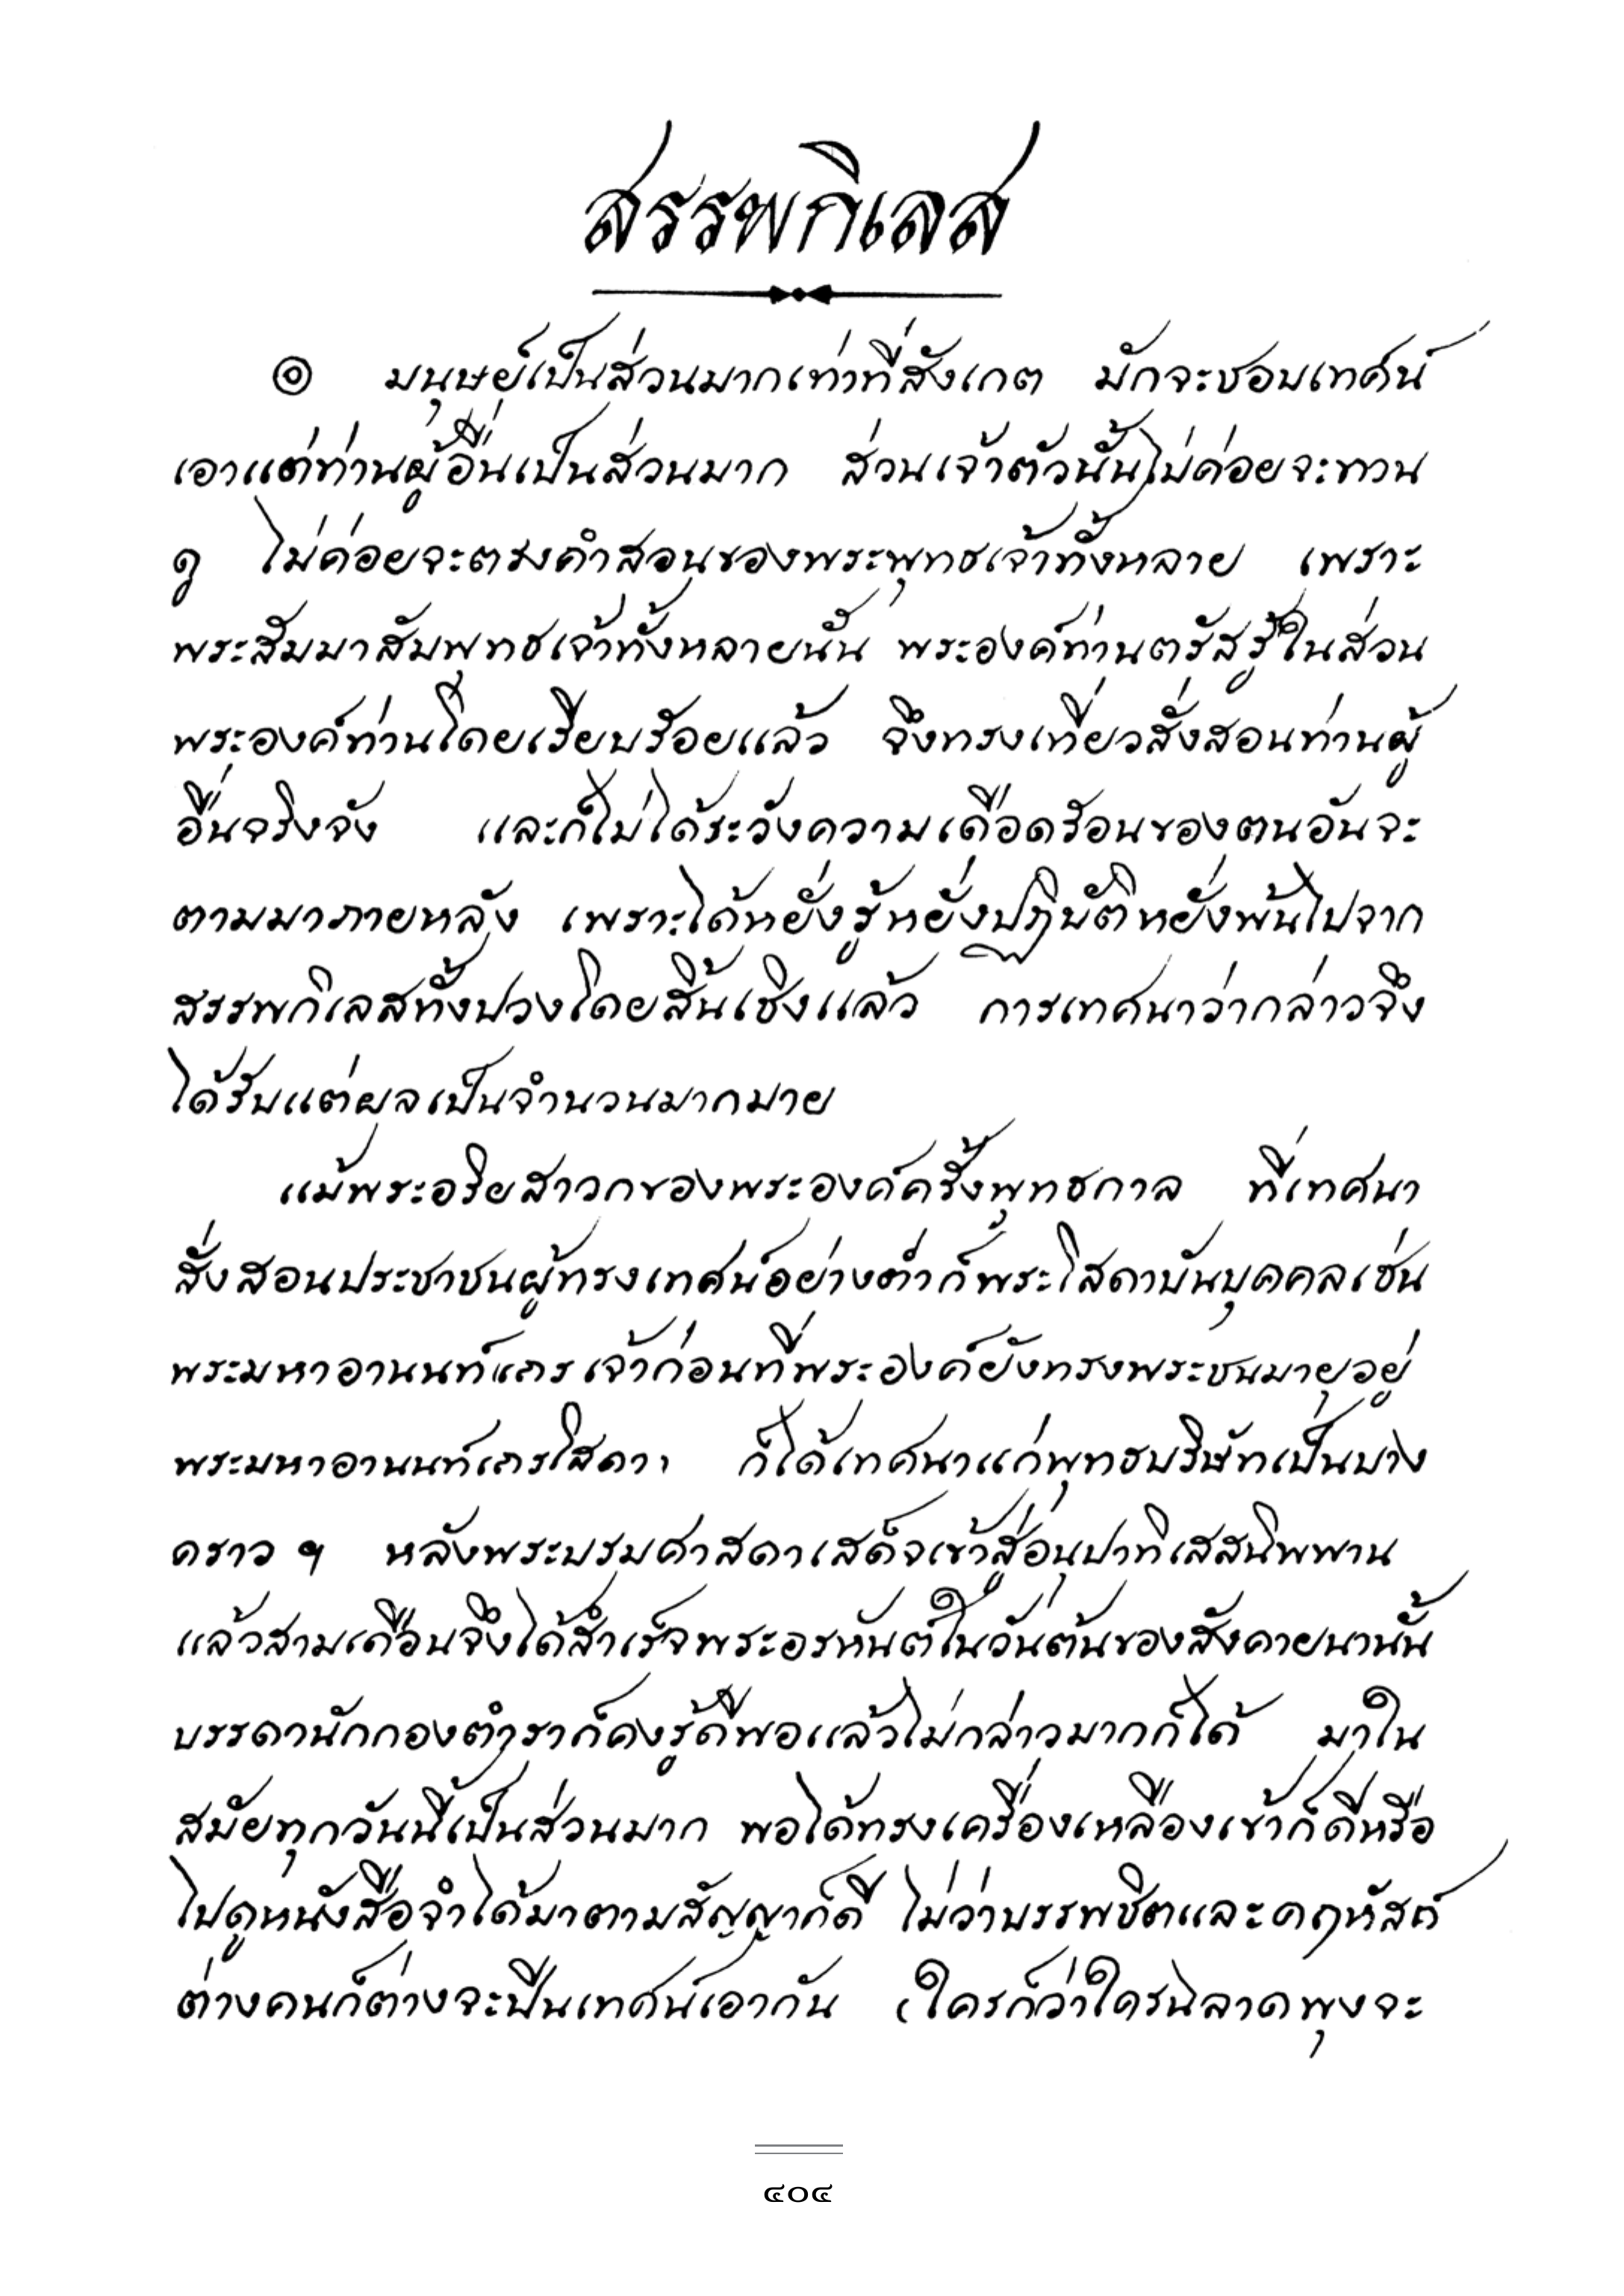 สรรพกิเลส
๏ มนุษย์เป็นส่วนมากเท่าที่สังเกต มักจะชอบเทศน์
เอาแต่ท่านผู้อื่นเป็นส่วนมาก ส่วนเจ้าตัวนั้นไม่ค่อยจะทวน
ดู ไม่ค่อยจะตรงคำสอนของพระพุทธเจ้าทั้งหลาย เพราะ
พระสัมมาสัมพุทธเจ้าทั้งหลายนั้น พระองค์ท่านตรัสรู้ในส่วน
พระองค์ท่านโดยเรียบร้อยแล้ว จึงทรงเที่ยวสั่งสอนท่านผู้
อื่นจริงจัง และก็ไม่ได้ระวังความเดือดร้อนของตนอันจะ
ตามมาภายหลัง เพราะได้หยั่งรู้หยั่งปฏิบัติหยั่งพ้นไปจาก
สรรพกิเลสทั้งปวงโดยสิ้นเชิงแล้ว การเทศนาว่ากล่าวจึง
ได้รับแต่ผลเป็นจำนวนมากมาย
แม้พระอริยสาวกของพระองค์ครั้งพุทธกาล ที่เทศนา
สั่งสอนประชาชนผู้ทรงเทศน์อย่างต่ำก็พระโสดาบันบุคคลเช่น
พระมหาอานนท์เถรเจ้าก่อนที่พระองค์ยังทรงพระชนมายุอยู่
พระมหาอานนท์เถรโสดาฯ ก็ได้เทศนาแก่พุทธบริษัทเป็นบาง
คราว ๆ หลังพระบรมศาสดาเสด็จเข้าสู่อนุปาทิเสสนิพพาน
แล้วสามเดือนจึงได้สำเร็จพระอรหันต์ในวันต้นของสังคายนานั้น
บรรดานักกองตำราก็คงรู้ดีพอแล้วไม่กล่าวมากก็ได้ มาใน
สมัยทุกวันนี้เป็นส่วนมาก พอได้ทรงเครื่องเหลืองเข้าก็ดีหรือ
ไปดูหนังสือจำได้มาตามสัญญาก็ดี ไม่ว่าบรรพชิตและคฤหัสถ์
ต่างคนก็ต่างจะปีนเทศน์เอากัน (ใครก็ว่าใครฉลาดพุงจะ
๔๐๔